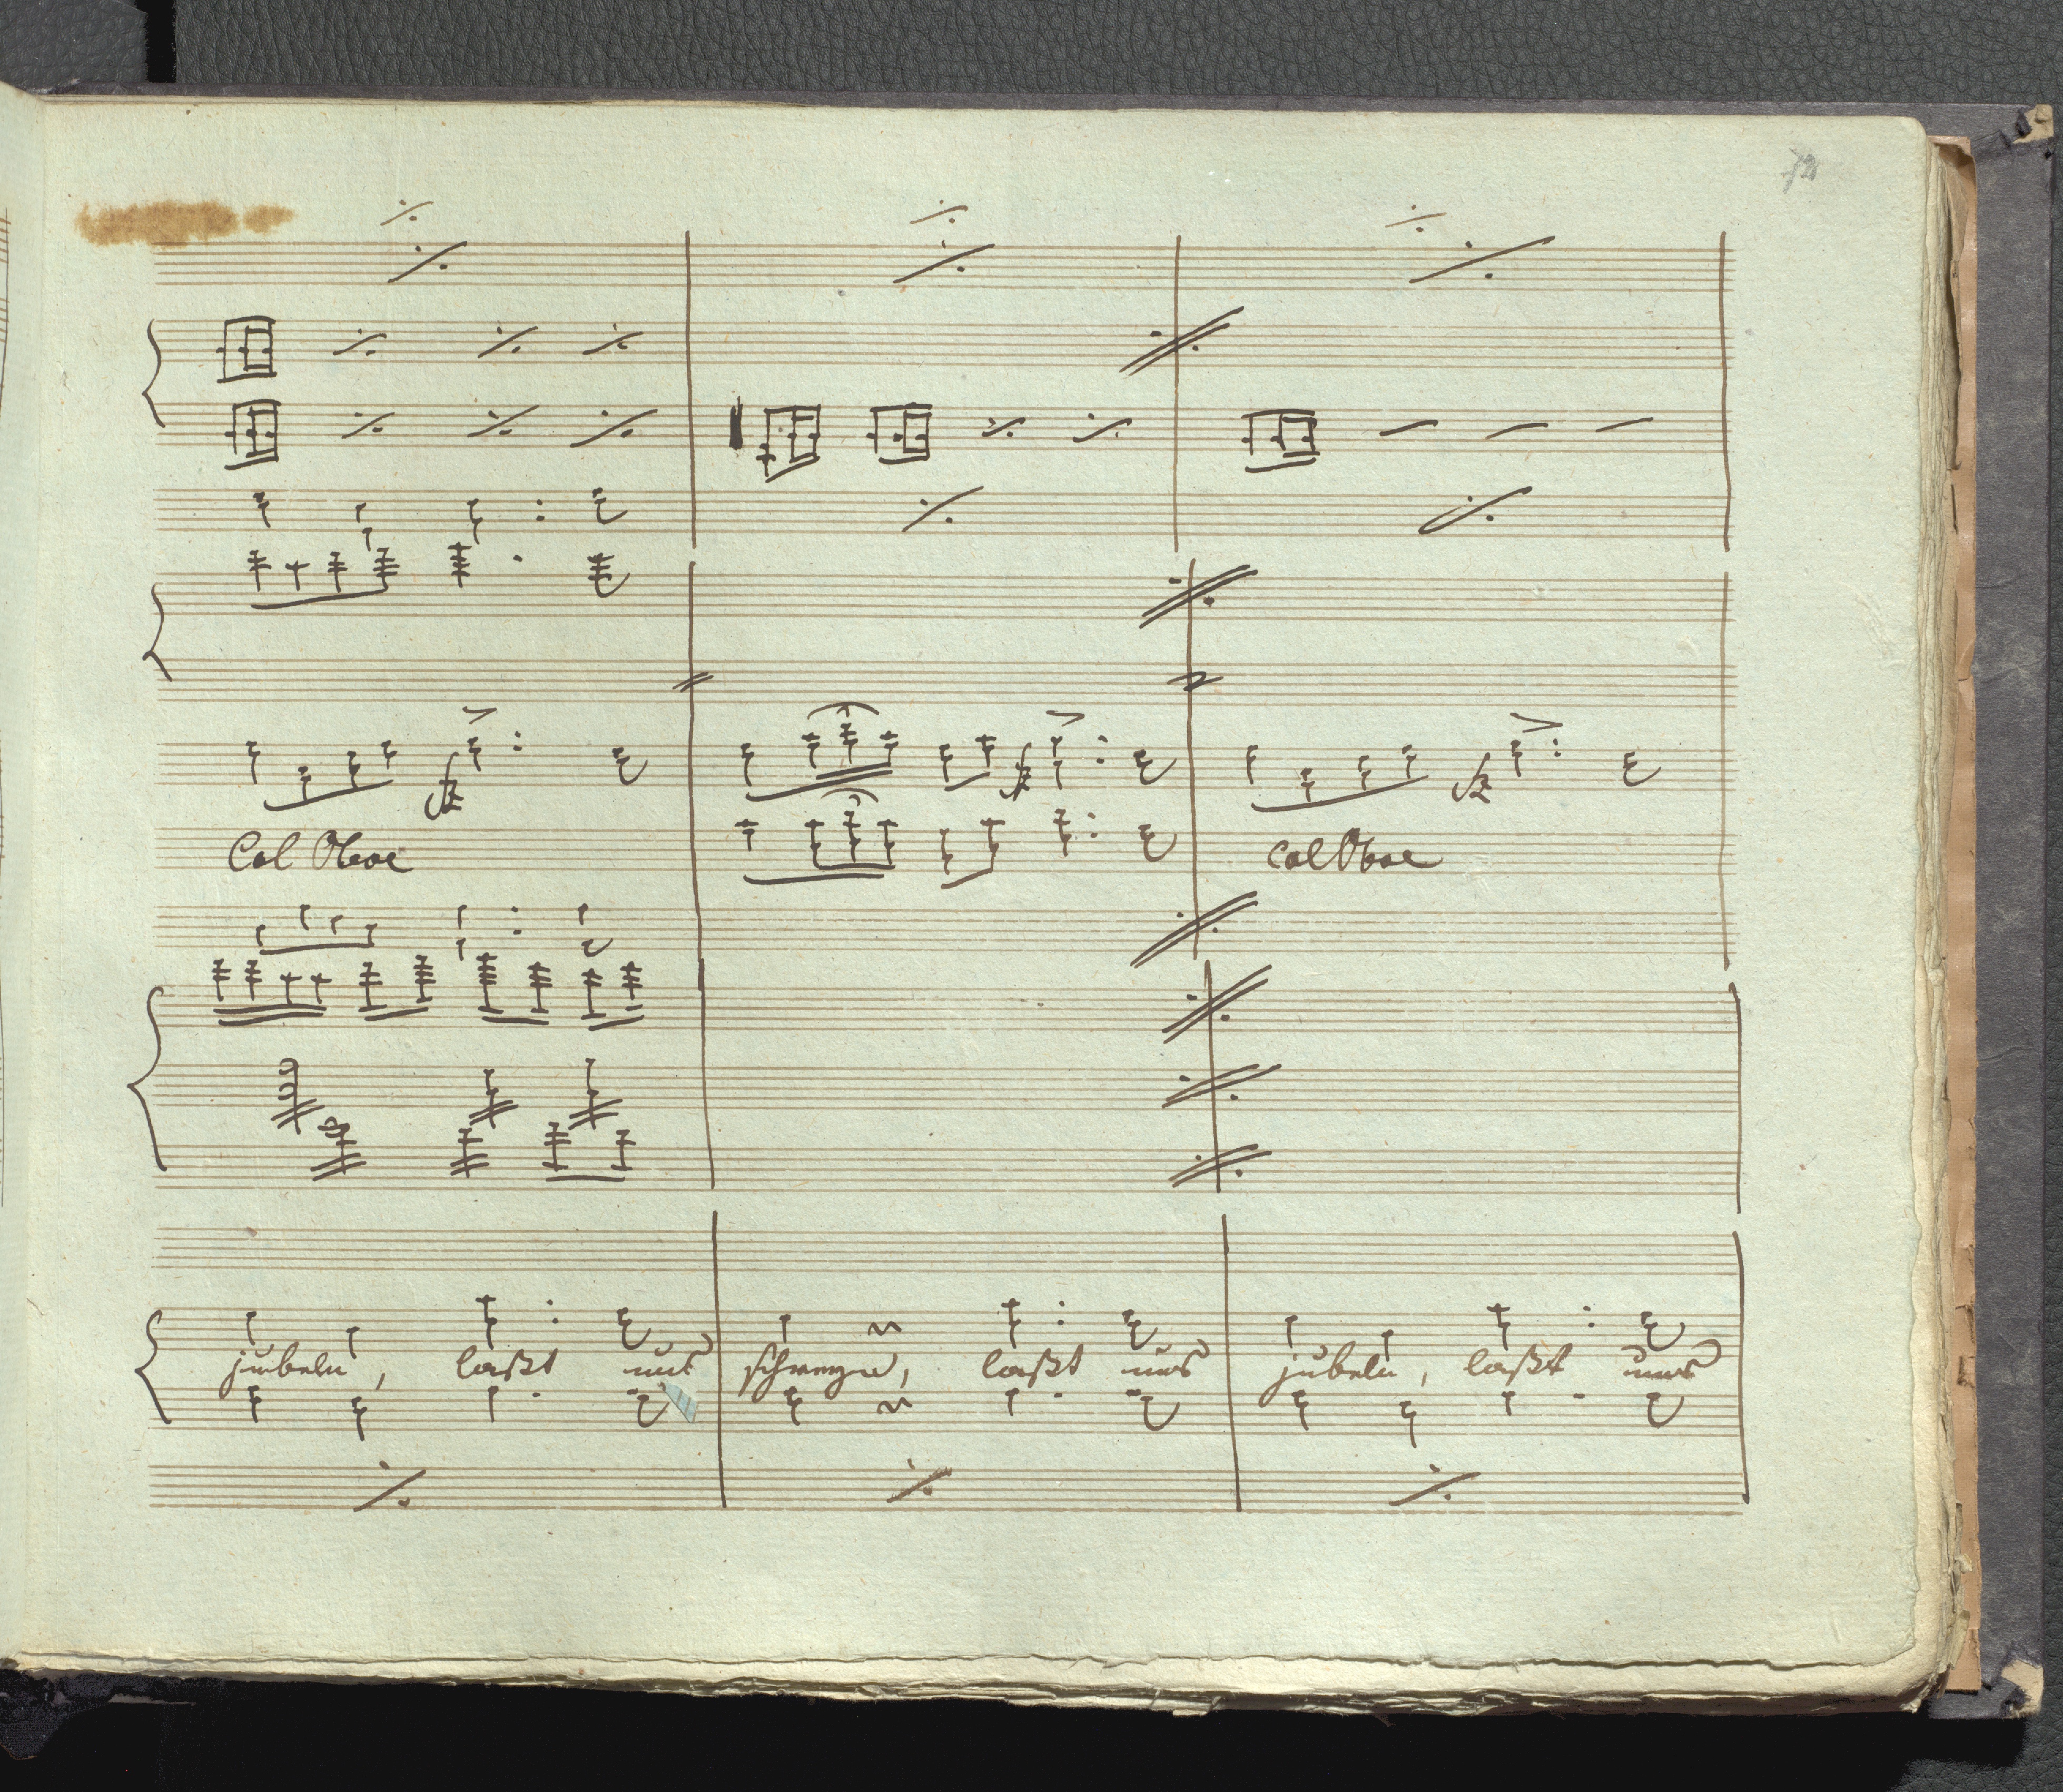 Col Oboe col Oboe
jubeln, laßt uns schwazn, laßt uns jubeln, laßt uns